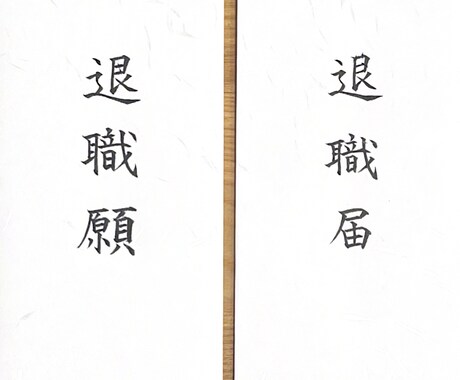 退職届
退職願